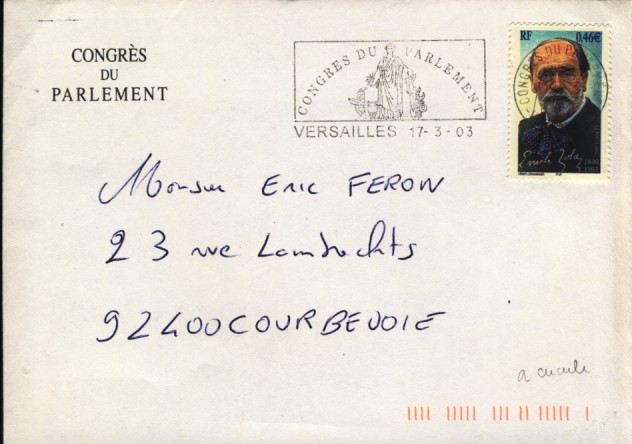 CONGRÈS
DU
PARLEMENT
CONGRES DU PARLEMENT
VERSAILLES 17-3-03
RF 0,46€
CONGRES DU P
Emile Zola
Monsieur Eric FERON
23 rue Lambrechts
92400 COURBEVOIE